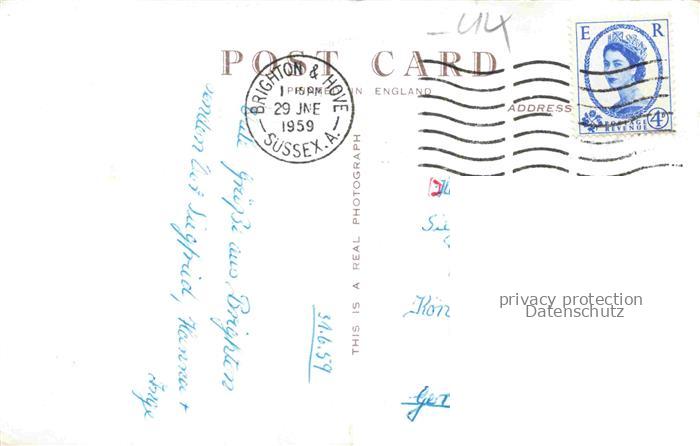 UK
E R
POST CARD
PRINTED IN ENGLAND
BRIGHTON & HOVE
1 15 PM
29 JNE
1959
SUSSEX. A.
ADDRESS
POSTAGE
REVENUE
4D
THIS IS A REAL PHOTOGRAPH
Grüße aus Brighton
senden Siegfried, Hanna +
Inge
Kön
Ger
privacy protection
Datenschutz